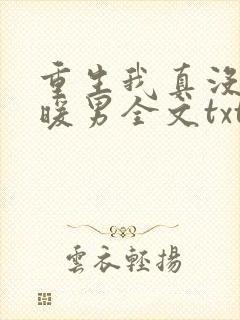 重生我真没
暖男全文txt
雲衣輕揚